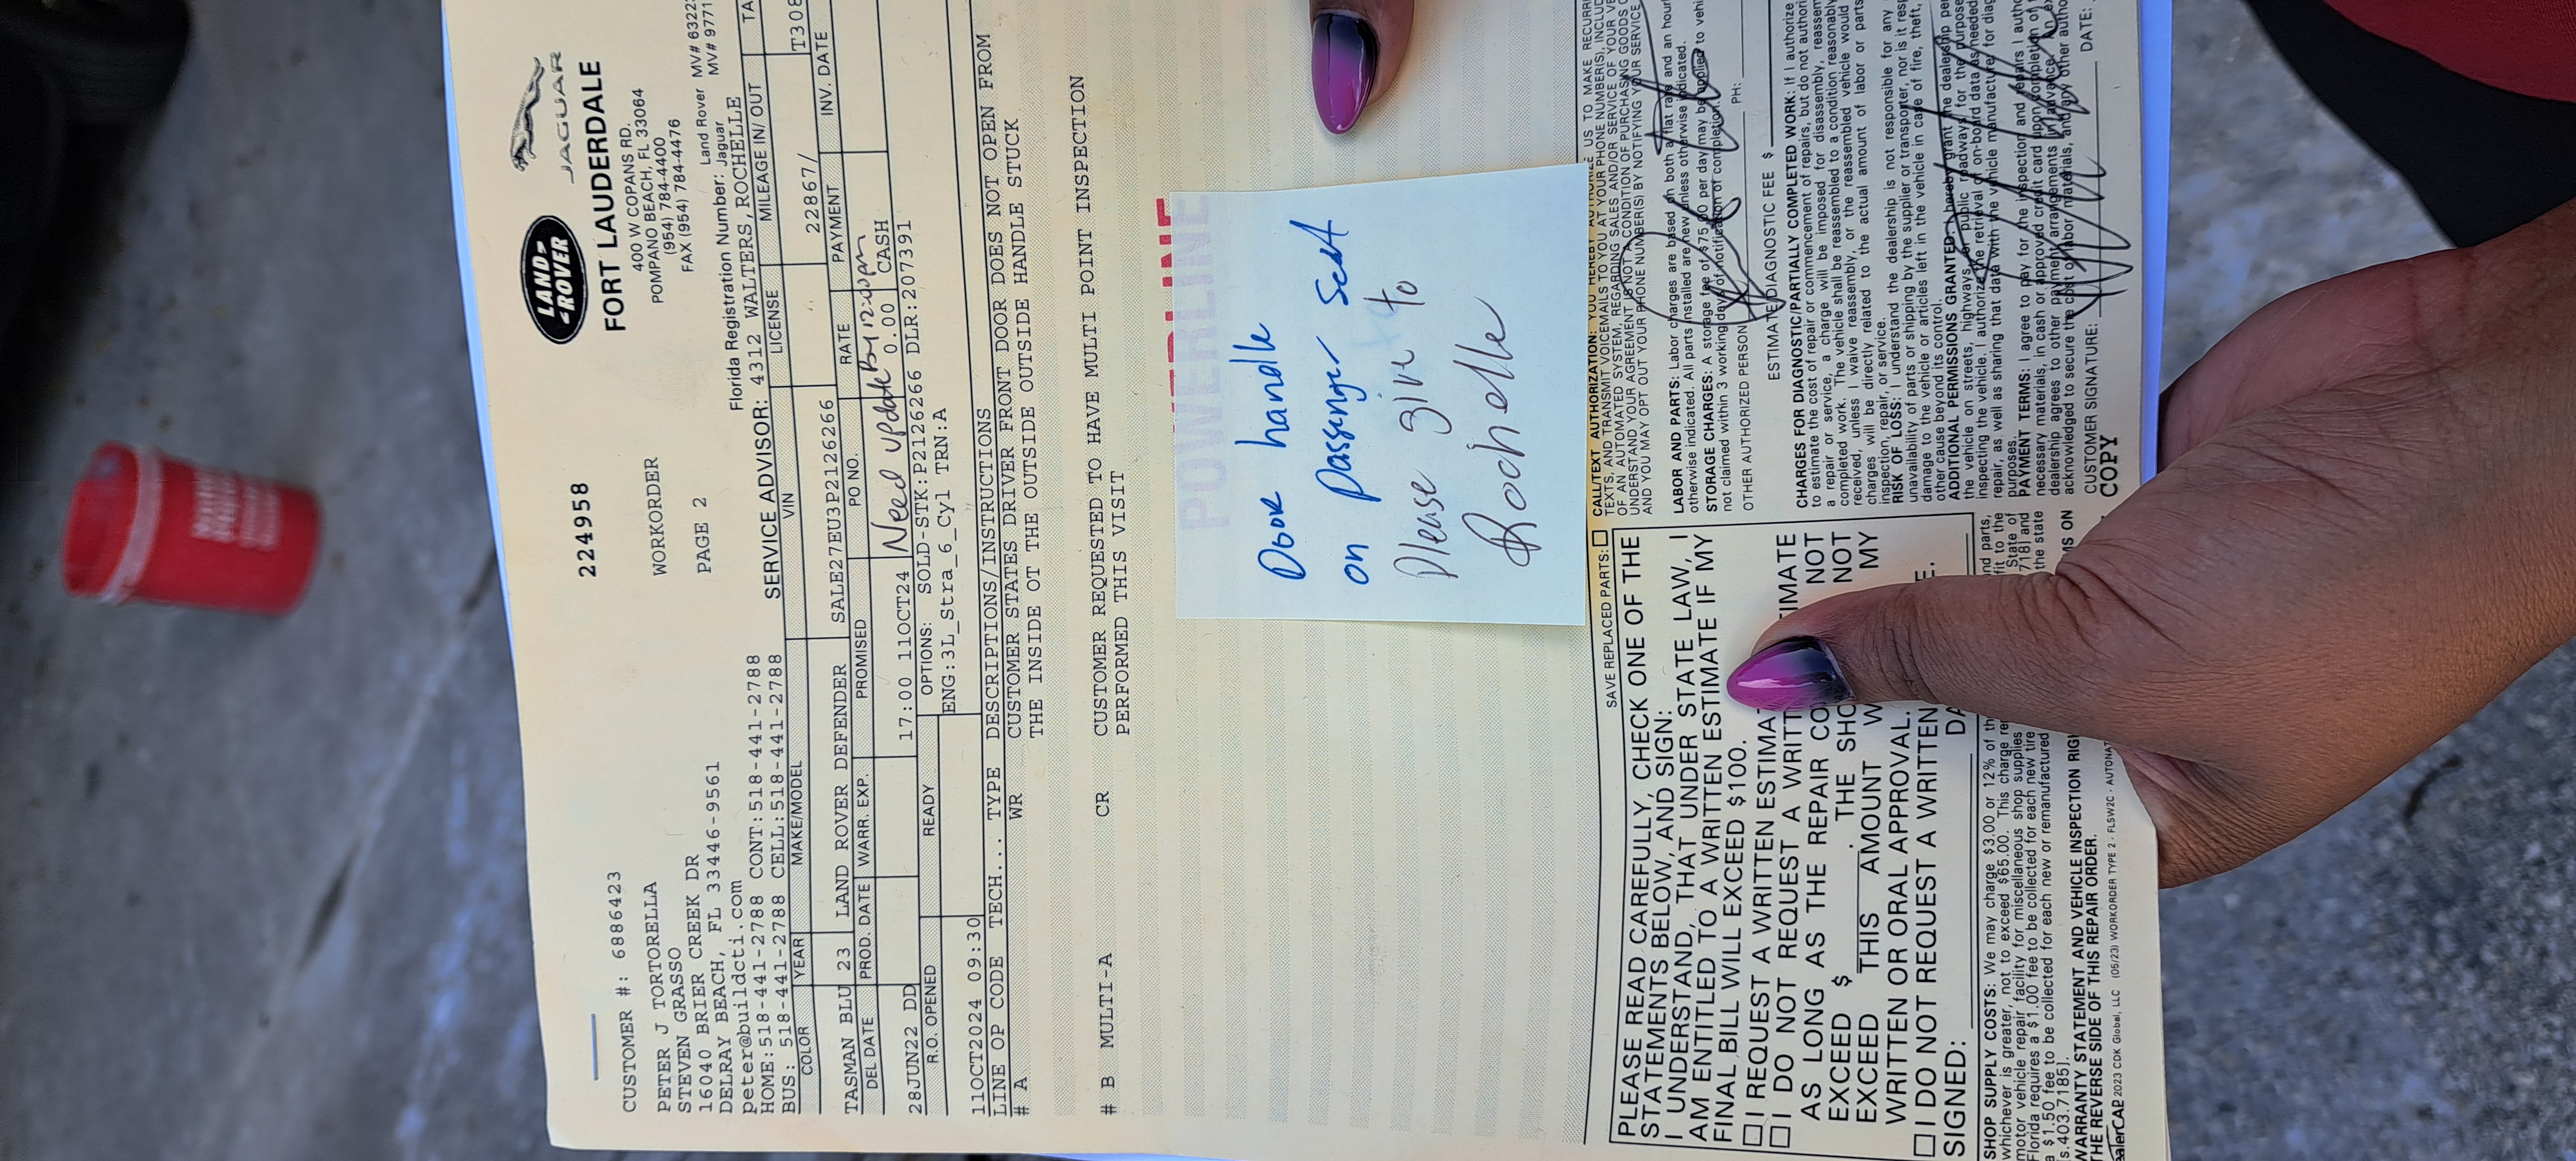 224958
LAND-
ROVER
JAGUAR
FORT LAUDERDALE
400 W COPANS RD.
POMPANO BEACH, FL 33064
(954) 784-4400
FAX (954) 784-4476
Florida Registration Number: Land Rover MV# 6322
Jaguar MV# 9771
CUSTOMER #: 6886423
WORKORDER
PAGE 2
PETER J TORTORELLA
STEVEN GRASSO
16040 BRIER CREEK DR
DELRAY BEACH, FL 33446-9561
peter@buildcti.com
HOME:518-441-2788 CONT:518-441-2788
BUS: 518-441-2788 CELL:518-441-2788
SERVICE ADVISOR: 4312 WALTERS,ROCHELLE
COLOR YEAR MAKE/MODEL VIN LICENSE MILEAGE IN/ OUT TA
TASMAN BLU 23 LAND ROVER DEFENDER SALE27EU3P2126266 22867/ T308
DEL DATE PROD. DATE WARR. EXP. PROMISED PO NO. RATE PAYMENT INV. DATE
Need update by 12:00pm
28JUN22 DD 17:00 11OCT24 0.00 CASH
R.O. OPENED READY OPTIONS: SOLD-STK:P2126266 DLR:207391
ENG:3L_Stra_6_Cyl TRN:A
11OCT2024 09:30
LINE OP CODE TECH... TYPE DESCRIPTIONS/INSTRUCTIONS
# A WR CUSTOMER STATES DRIVER FRONT DOOR DOES NOT OPEN FROM
THE INSIDE OT THE OUTSIDE OUTSIDE HANDLE STUCK
# B MULTI-A CR CUSTOMER REQUESTED TO HAVE MULTI POINT INSPECTION
PERFORMED THIS VISIT
POWERLINE
Door handle
on passenger seat
please give to
Rochelle
SAVE REPLACED PARTS: ☐
PLEASE READ CAREFULLY, CHECK ONE OF THE
STATEMENTS BELOW, AND SIGN:
I UNDERSTAND, THAT UNDER STATE LAW, I
AM ENTITLED TO A WRITTEN ESTIMATE IF MY
FINAL BILL WILL EXCEED $100.
☐ I REQUEST A WRITTEN ESTIMA TIMATE
☐ I DO NOT REQUEST A WRITT
AS LONG AS THE REPAIR CO NOT
EXCEED $ . THE SHO NOT
EXCEED THIS AMOUNT W MY
WRITTEN OR ORAL APPROVAL.
☐ I DO NOT REQUEST A WRITTEN E.
SIGNED: DA
SHOP SUPPLY COSTS: We may charge $3.00 or 12% of th nd parts,
whichever is greater, not to exceed $65.00. This charge re fit to the
motor vehicle repair facility for miscellaneous shop supplies State of
Florida requires a $1.00 fee to be collected for each new tire 718] and
a $1.50 fee to be collected for each new or remanufactured the state
[s.403.7185].
WARRANTY STATEMENT AND VEHICLE INSPECTION RIG MS ON
THE REVERSE SIDE OF THIS REPAIR ORDER.
2023 CDK Global, LLC (05/23) WORKORDER TYPE 2 - FLSW2C - AUTONAT
CALL/TEXT AUTHORIZATION: YOU HEREBY AUTHORIZE US TO MAKE RECURRI
TEXTS, AND TRANSMIT VOICEMAILS TO YOU AT YOUR PHONE NUMBER(S), INCLUD
OF AN AUTOMATED SYSTEM, REGARDING SALES AND/OR SERVICE OF YOUR VE
UNDERSTAND YOUR AGREEMENT IS NOT A CONDITION OF PURCHASING GOODS O
AND YOU MAY OPT OUT YOUR PHONE NUMBER(S) BY NOTIFYING YOUR SERVICE
LABOR AND PARTS: Labor charges are based on both a flat rate and an hour
otherwise indicated. All parts installed are new unless otherwise indicated.
STORAGE CHARGES: A storage fee of $75.00 per day may be applied to vehi
not claimed within 3 working days of notification of completion.
OTHER AUTHORIZED PERSON PH:
ESTIMATE/DIAGNOSTIC FEE $
CHARGES FOR DIAGNOSTIC/PARTIALLY COMPLETED WORK: If I authorize
to estimate the cost of repair or commencement of repairs, but do not authori
a repair or service, a charge will be imposed for disassembly, reassem
completed work. The vehicle shall be reassembled to a condition reasonably
received, unless I waive reassembly, or the reassembled vehicle would
charges will be directly related to the actual amount of labor or parts
inspection, repair, or service.
RISK OF LOSS: I understand the dealership is not responsible for any
unavailability of parts or shipping by the supplier or transporter, nor is it resp
damage to the vehicle or articles left in the vehicle in case of fire, theft,
other cause beyond its control.
ADDITIONAL PERMISSIONS GRANTED: I hereby grant the dealership per
the vehicle on streets, highways or public roadways for the purpose
inspecting the vehicle. I authorize the retrieval of on-board data as needed
repair, as well as sharing that data with the vehicle manufacturer for diag
purposes.
PAYMENT TERMS: I agree to pay for the inspection and repairs I autho
necessary materials, in cash or approved credit card upon completion of
dealership agrees to other payment arrangements in advance. An ex
acknowledged to secure the cost of labor, materials, and any other autho
CUSTOMER SIGNATURE: DATE:
COPY